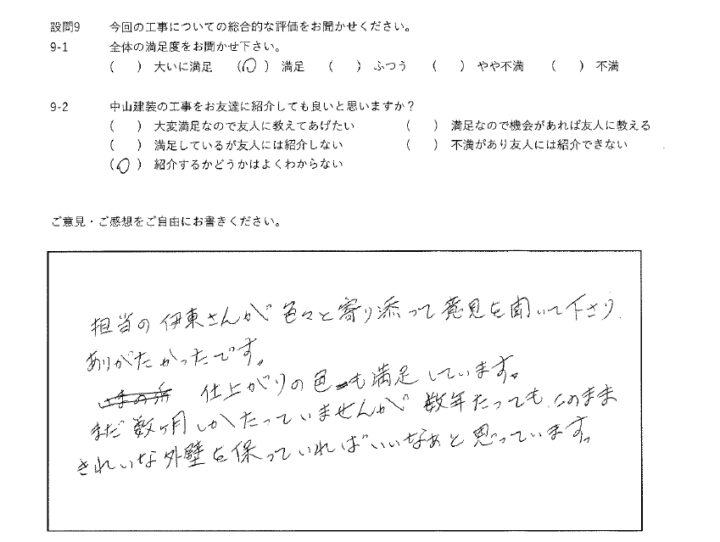 設問9 今回の工事についての総合的な評価をお聞かせください。
9-1 全体の満足度をお聞かせ下さい。
( ) 大いに満足 (○) 満足 ( ) ふつう ( ) やや不満 ( ) 不満
9-2 中山建装の工事をお友達に紹介しても良いと思いますか？
( ) 大変満足なので友人に教えてあげたい ( ) 満足なので機会があれば友人に教える
( ) 満足しているが友人には紹介しない ( ) 不満があり友人には紹介できない
(○) 紹介するかどうかはよくわからない
ご意見・ご感想をご自由にお書きください。
担当の伊東さんが色々と寄り添って意見を聞いて下さり
ありがたかったです。
仕上がりの色も満足しています。
まだ数ヶ月しかたっていませんが数年たっても、このまま
きれいな外壁を保っていればいいなぁと思っています。